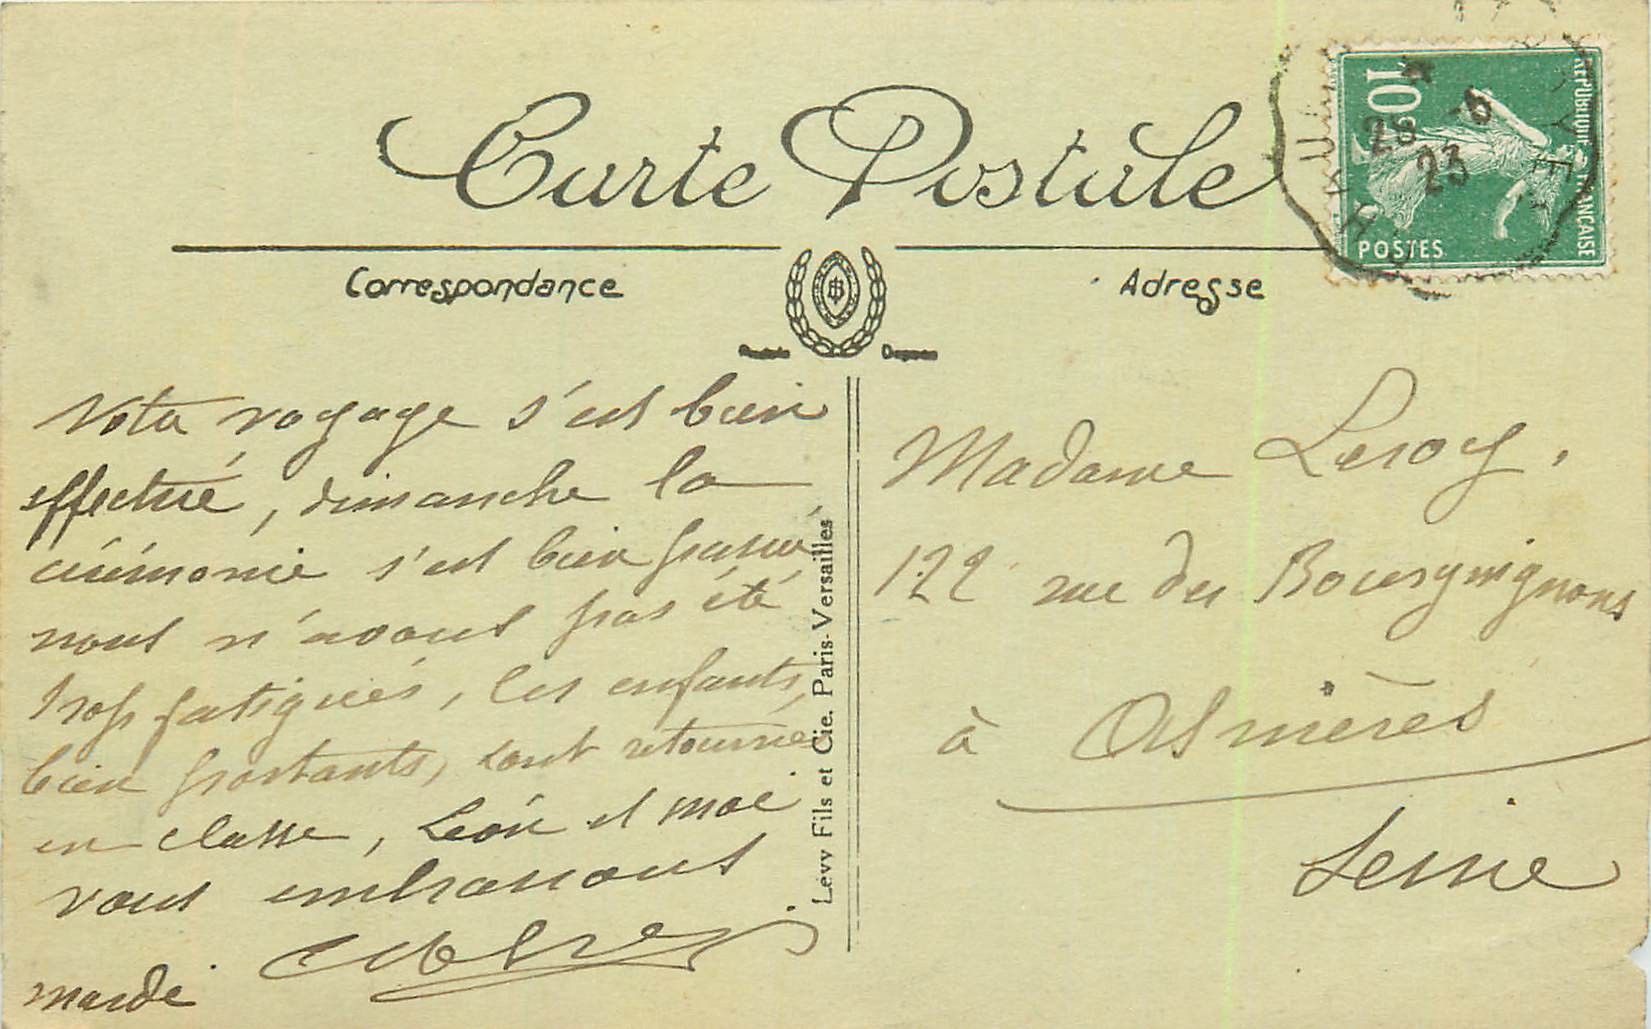 Carte Postale
Correspondance
Adresse
10c
RÉPUBLIQUE FRANÇAISE
POSTES
26 -6
23
Votre voyage s'est bien
effectué, dimanche la
cérémonie s'est bien passée,
nous n'avons pas été
trop fatigués, les enfants,
bien portants, sont retournés
en classe, Léon et moi
vous embrassons
mardi
Levy Fils et Cie. Paris-Versailles
Madame Leroy,
122 rue des Bourguignons
à Asnières
Seine